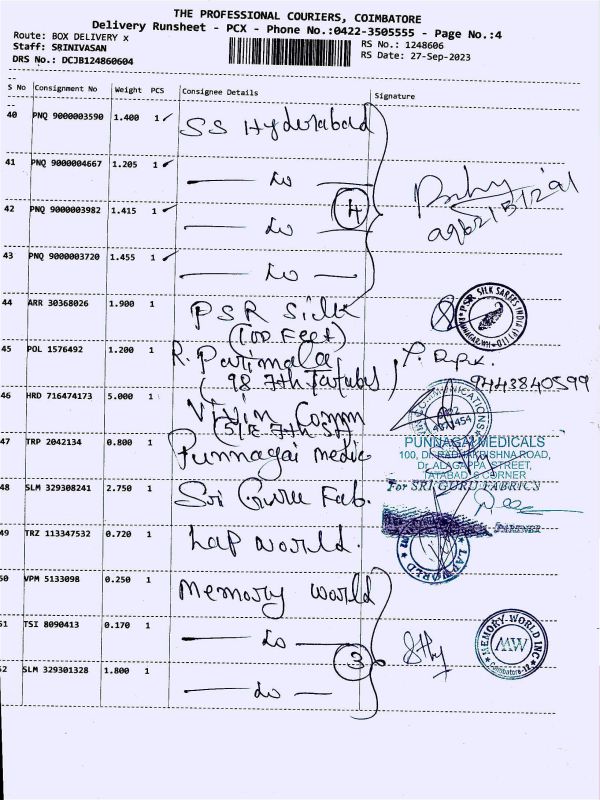 THE PROFESSIONAL COURIERS, COIMBATORE
Delivery Runsheet - PCX - Phone No.:0422-3505555 - Page No.:4
Route: BOX DELIVERY x
RS No.: 1248606
Staff: SRINIVASAN
RS Date: 27-Sep-2023
DRS No.: DCJB124860604
S No Consignment No Weight PCS Consignee Details Signature
40 PNQ 9000003590 1.400 1 SS Hyderabad
41 PNQ 9000004667 1.205 1 Do
42 PNQ 9000003982 1.415 1 Do 4
43 PNQ 9000003720 1.455 1 Do
44 ARR 30368026 1.900 1 PSR Silk
(100 Feet)
PSR SILK SAREES INDIA (P)
45 POL 1576492 1.200 1 R. Parimala
(98 7th
9443840599
46 HRD 716474173 5.000 1 Vivin Comm
(512 7th St)
47 TRP 2042134 0.800 1 Punnagai medic
PUNNAGAI MEDICALS
100, Dr. RADHAKRISHNA ROAD,
Dr. ALAGAPPA STREET,
TATABAD, S CORNER
48 SLM 329308241 2.750 1 Sri Guru Fab.
For SRI GURU FABRICS
PARTNER
49 TRZ 113347532 0.720 1 Lap world.
LAPWORLD
50 VPM 5133098 0.250 1 Memory world
51 TSI 8090413 0.170 1 Do 3
MEMORY-WORLD INC
MW
52 SLM 329301328 1.800 1 Do